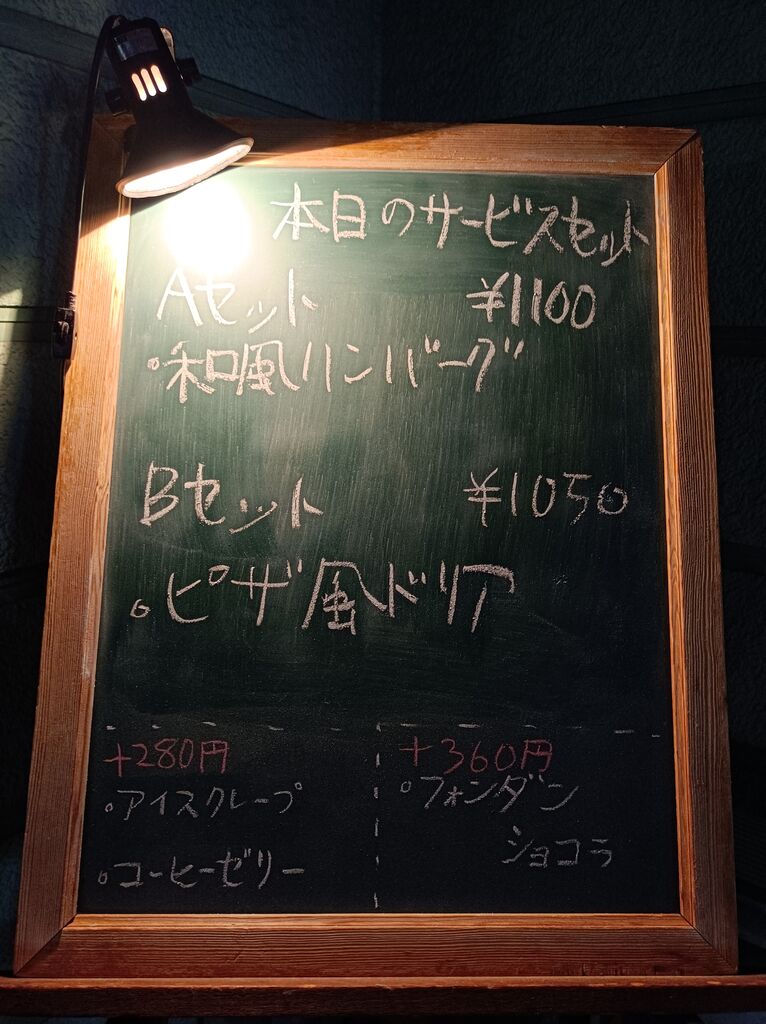 本日のサービスセット
Aセット ¥1100
。和風ハンバーグ
Bセット ¥1050
。ピザ風ドリア
+280円
。アイスクレープ
。コーヒーゼリー
+360円
。フォンダン
ショコラ